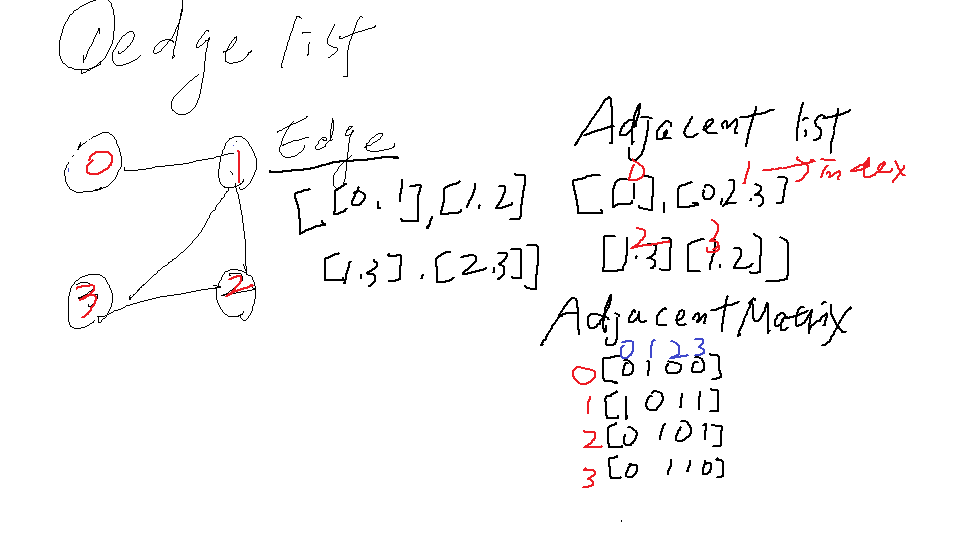 ① edge list
0
1
3
2
Edge
[[0,1],[1,2]
[1,3].[2,3]]
Adjacent list
0 1 → index
[[1],[0,2,3]
2 3
[1.3][1.2]]
Adjacent Matrix
0 1 2 3
0 [0 1 0 0]
1 [1 0 1 1]
2 [0 1 0 1]
3 [0 1 1 0]